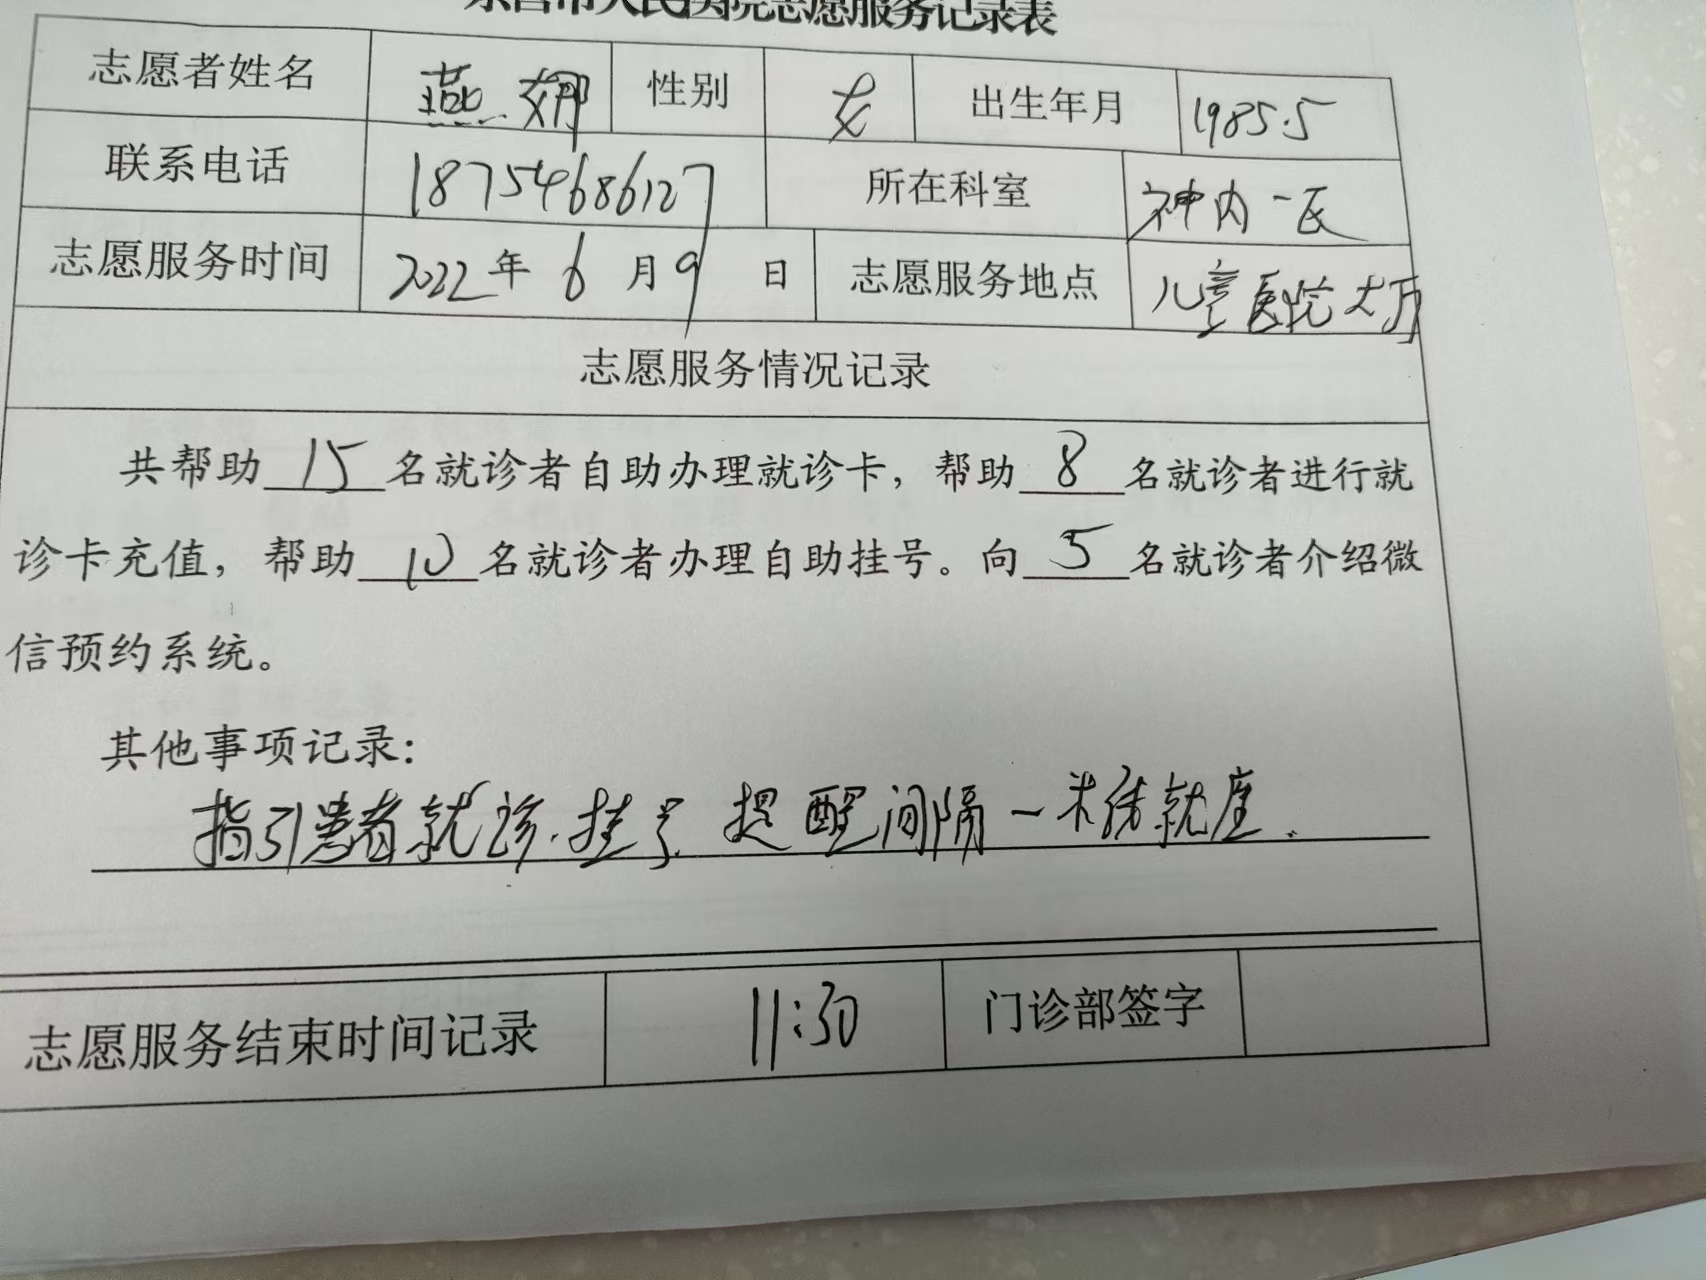 东营市人民医院志愿服务记录表
志愿者姓名 燕娜 性别 女 出生年月 1985.5
联系电话 18754686127 所在科室 神内一区
志愿服务时间 2022年 6 月 9 日 志愿服务地点 儿童医院大厅
志愿服务情况记录
共帮助 15 名就诊者自助办理就诊卡，帮助 8 名就诊者进行就
诊卡充值，帮助 10 名就诊者办理自助挂号。向 5 名就诊者介绍微
信预约系统。
其他事项记录：
指引患者就诊.挂号 提醒间隔一米 就座.
志愿服务结束时间记录 11:30 门诊部签字